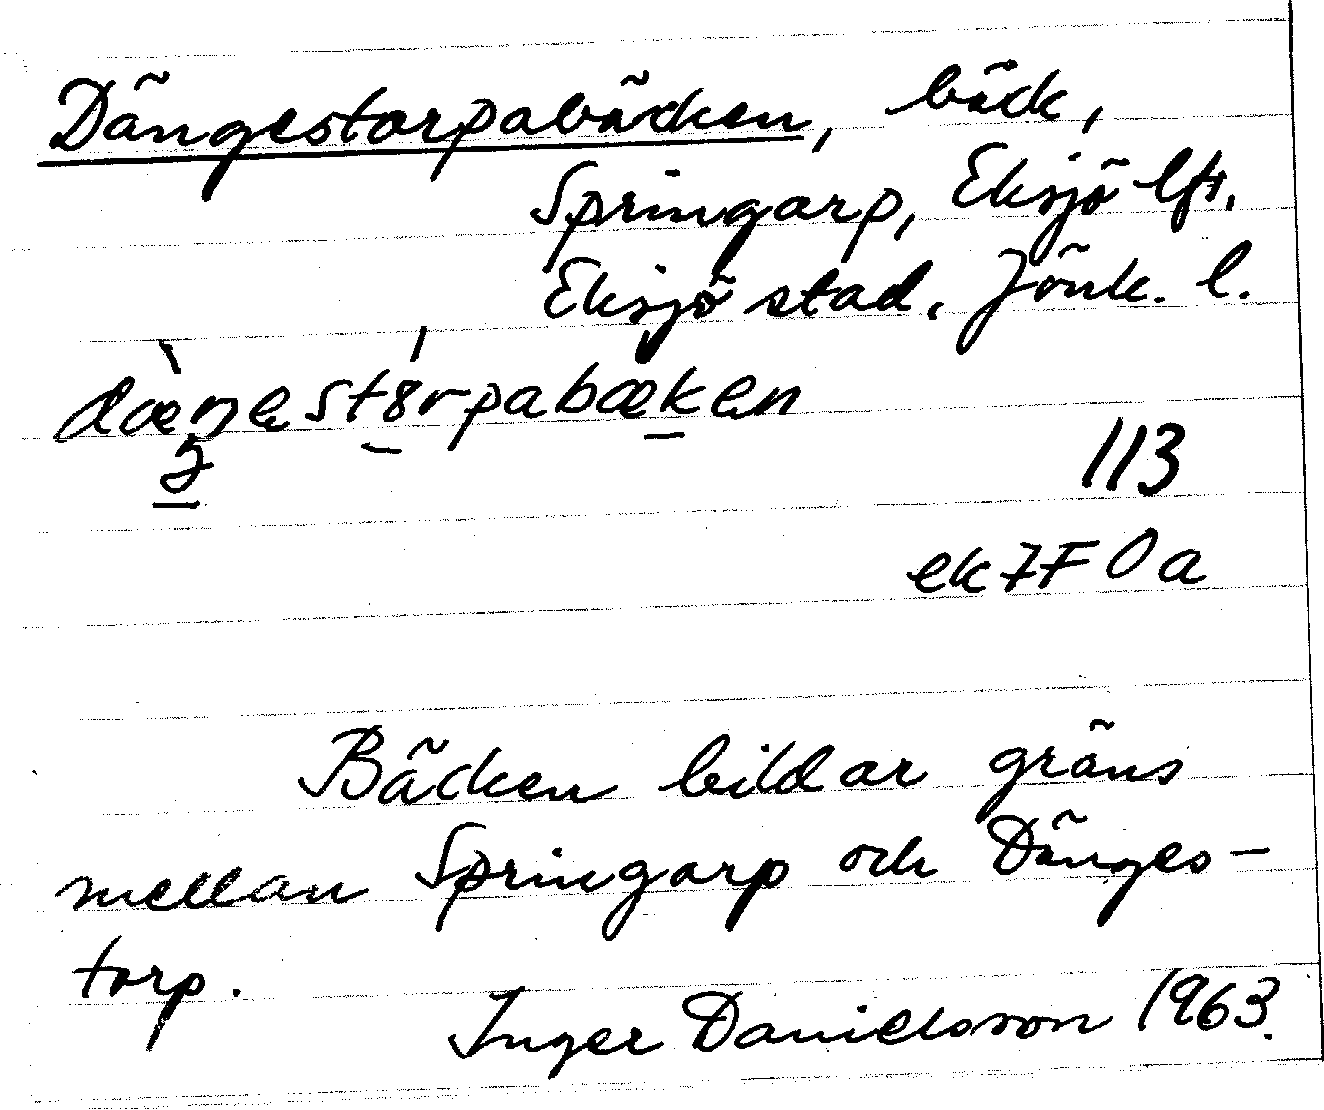 Dängestorpabäcken, bäck,
Springarp, Eksjö lfs.
Eksjö stad. Jönk. l.
113
ek 7F 0a
Bäcken bildar gräns
mellan Springarp och Dänges-
torp.
Inger Danielsson 1963.